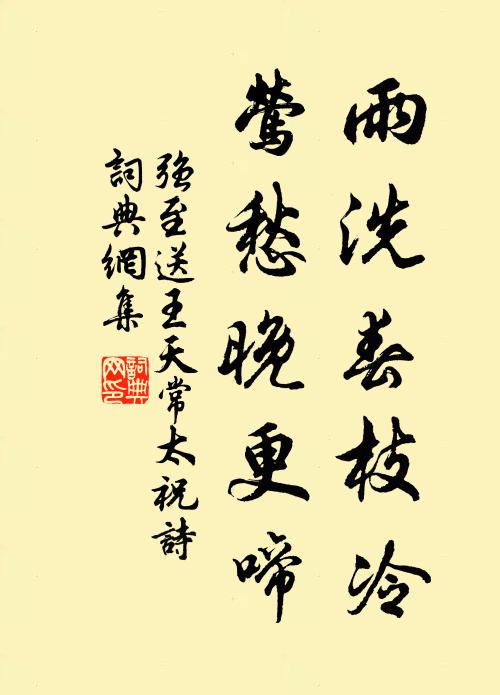 雨洗春枝冷
鶯愁晚更啼
強至送王天常太祝詩
詞典網集
詞典网印